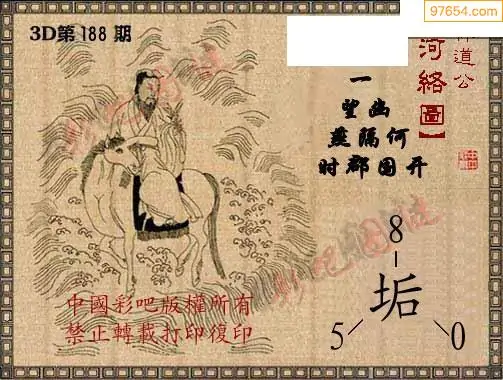 97654.com
3D第188期
道公
河絡圖】
一
望幽
燕隔何
时郡国开
8
垢
5 0
中國彩吧版權所有
禁止轉載打印復印